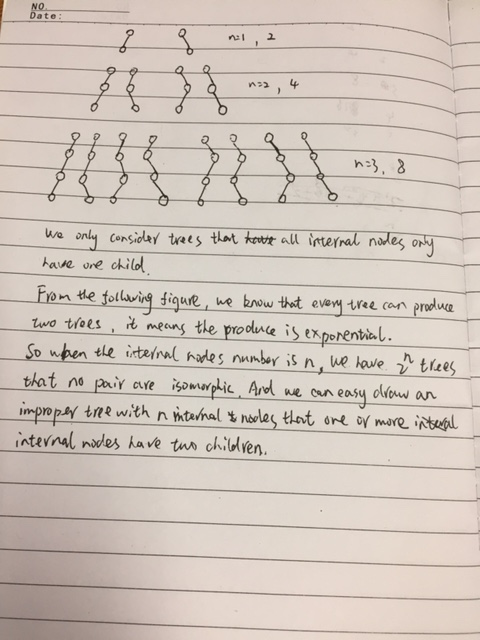 NO.
Date:
n=1, 2
n=2, 4
n=3, 8
We only consider trees that have all internal nodes only
have one child.
From the following figure, we know that every tree can produce
two trees, it means the produce is exponential.
So when the internal nodes number is n, we have 2^n trees
that no pair are isomorphic. And we can easy draw an
improper tree with n internal nodes that one or more interal
internal nodes have two children.